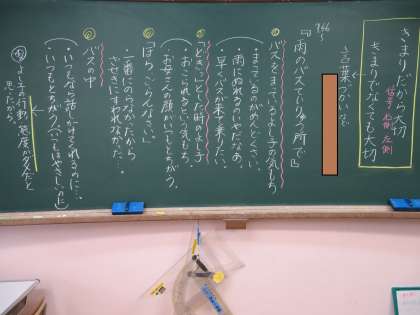 きまりだから大切
きまりでなくても大切
信号 右側 左側
→言葉づかいなど
P66〜
『雨のバスていりゅう所で』
①バスをまっているよし子の気もち
・まっているのめんどくさい。
・雨にぬれるのいやだなあ。
・早くバスが来て乗りたい。
②「どきっ」とした時のよし子
・おこられるという気もち。
・お母さんの顔がいつもとちがう。
・「ほら、ごらんなさい。」
・一番にのらなかったから
させきにすわれなかった。
③バスの中
・いつもなら話しかけてくれるのに…
・いつもとちがう(いつもはやさしいのに)
④よし子の行動、態度がダメだと
思たから。